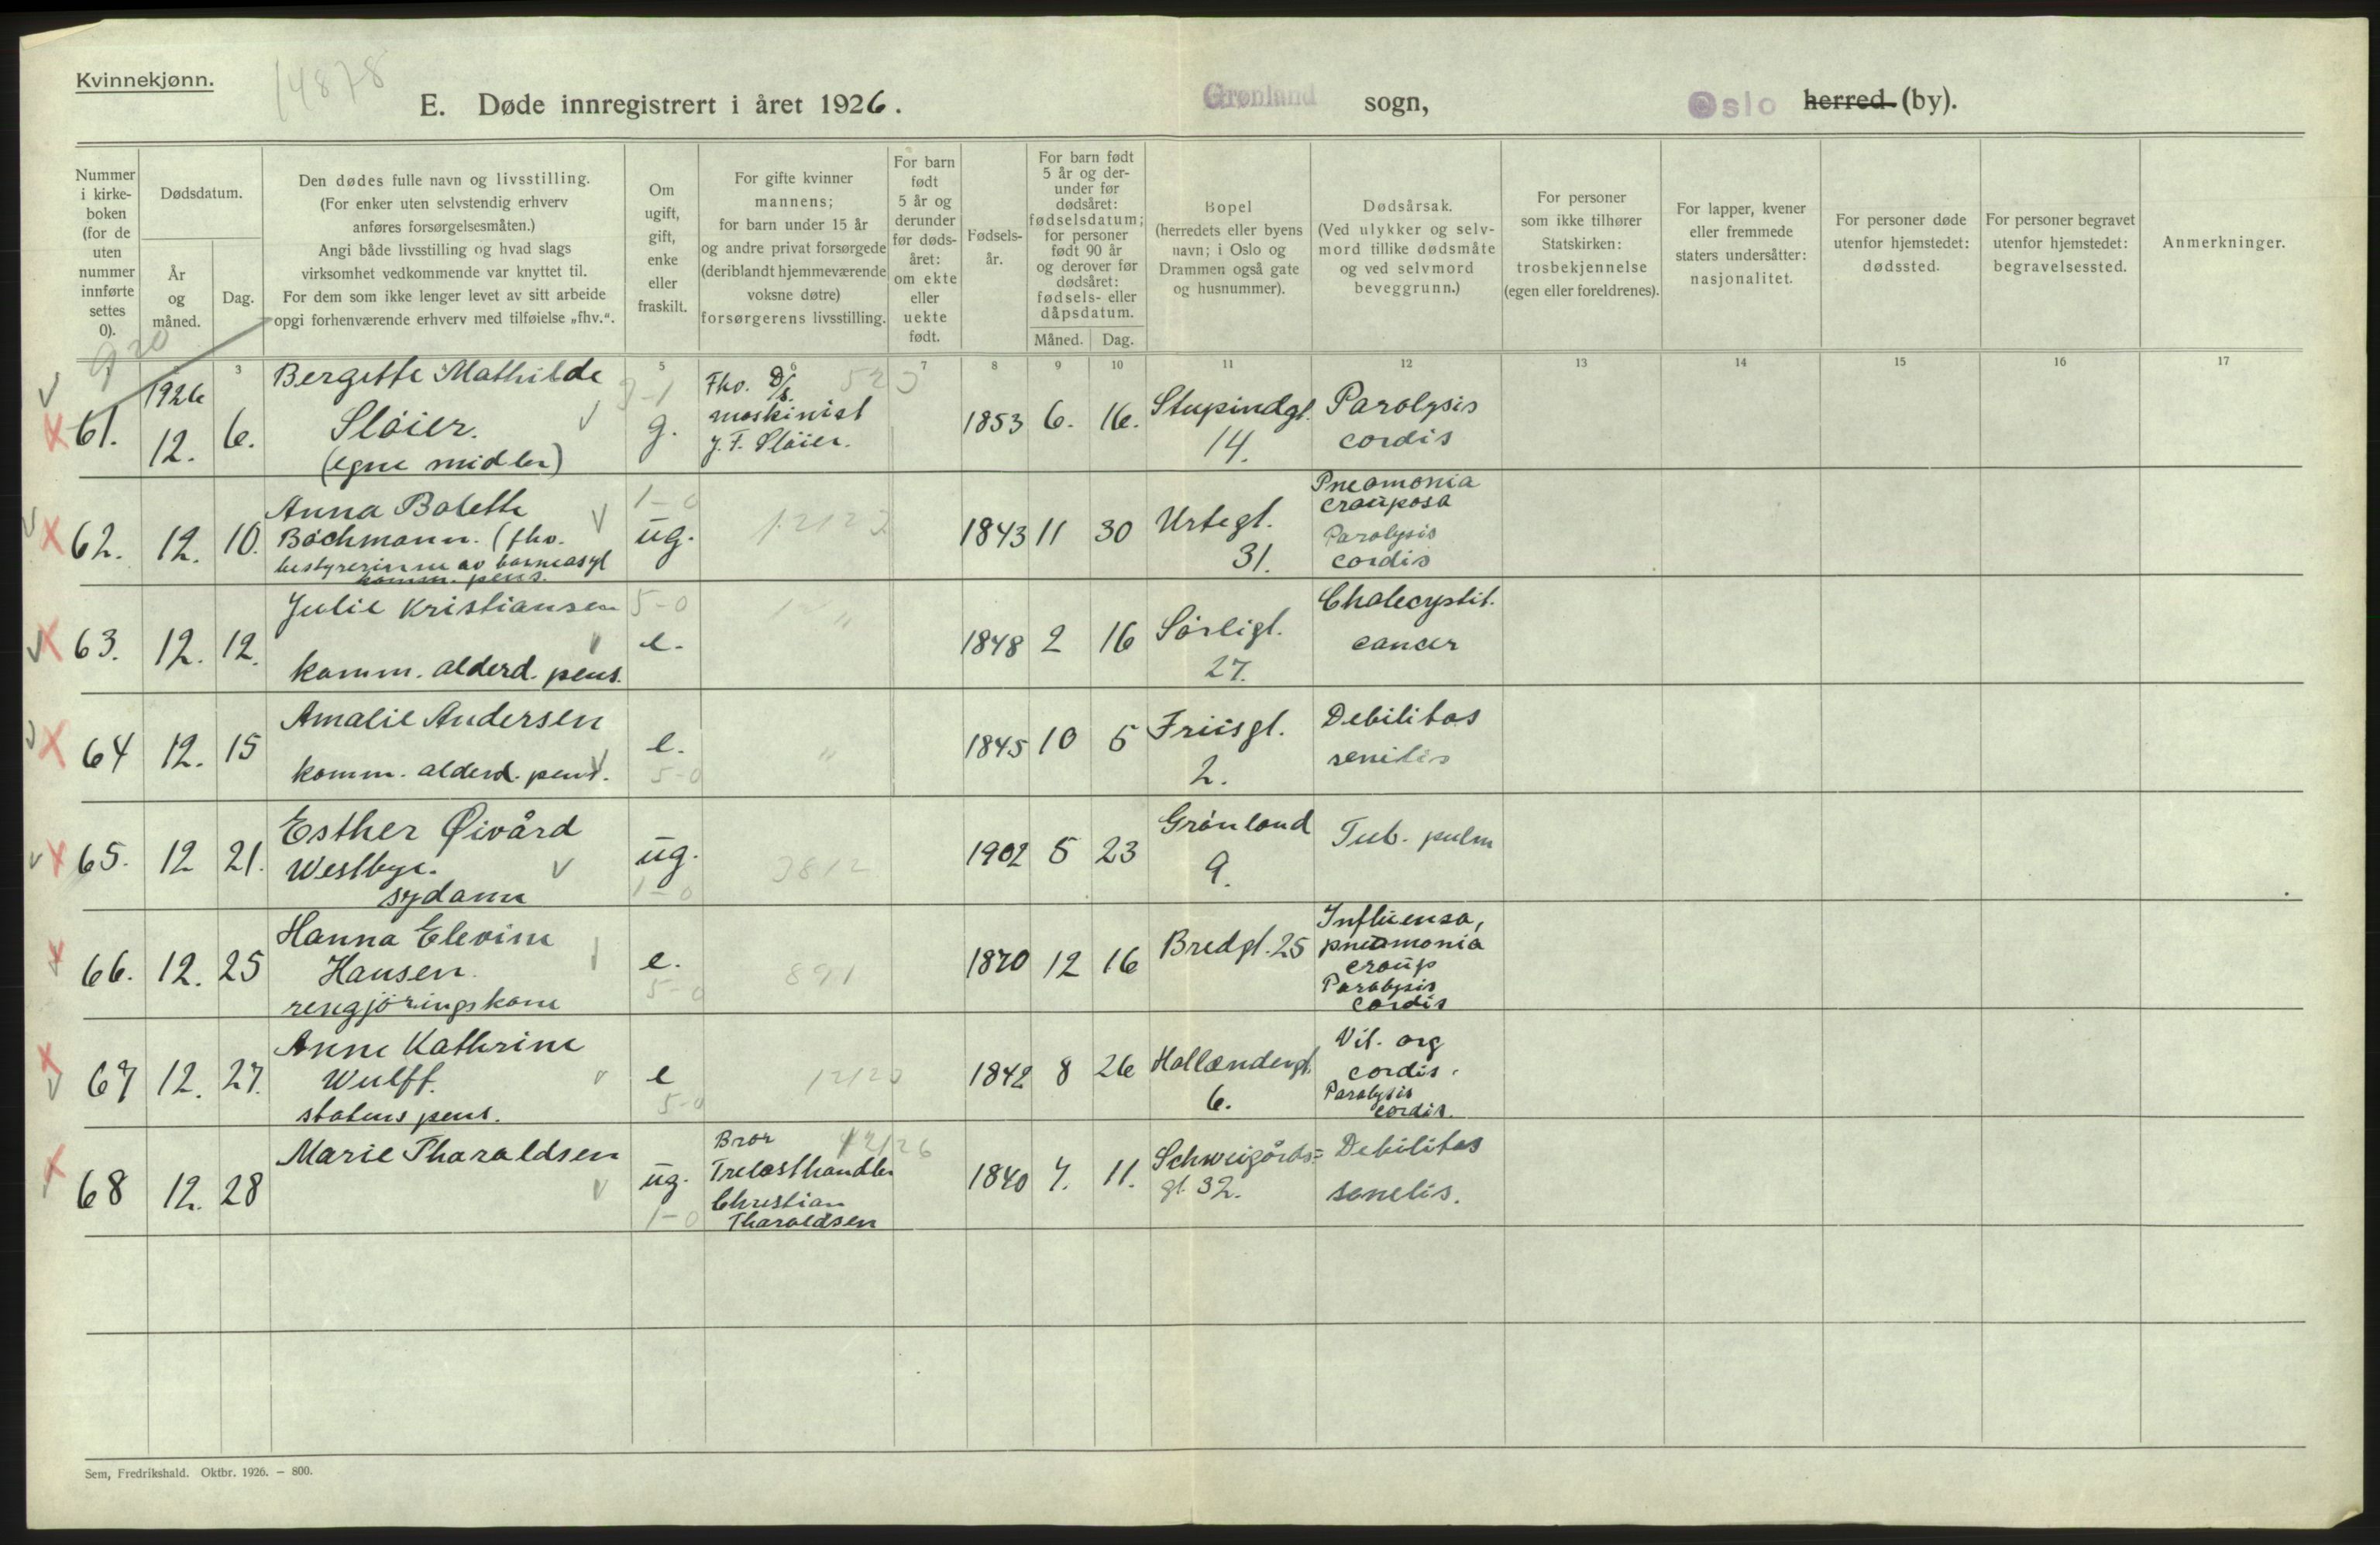 Kvinnekjønn.
14878
E. Døde innregistrert i året 1926.
Grønland sogn,
Oslo herred (by).
Nummer i kirke-boken (for de uten nummer innførte settes 0).
Dødsdatum.
År og måned.
Dag.
Den dødes fulle navn og livsstilling.
(For enker uten selvstendig erhverv
anføres forsørgelsesmåten.)
Angi både livsstilling og hvad slags
virksomhet vedkommende var knyttet til.
For dem som ikke lenger levet av sitt arbeide
opgi forhenværende erhverv med tilføielse „fhv.“.
Om ugift, gift, enke eller fraskilt.
For gifte kvinner
mannens;
for barn under 15 år
og andre privat forsørgede
(deriblandt hjemmeværende
voksne døtre)
forsørgerens livsstilling.
For barn født 5 år og derunder før døds-året: om ekte eller uekte født.
Fødsels-år.
For barn født 5 år og der-under før dødsåret: fødselsdatum; for personer født 90 år og derover før dødsåret: fødsels- eller dåpsdatum.
Måned. Dag.
Bopel
(herredets eller byens
navn; i Oslo og
Drammen også gate
og husnummer).
Dødsårsak.
(Ved ulykker og selv-
mord tillike dødsmåte
og ved selvmord
beveggrunn.)
For personer
som ikke tilhører
Statskirken:
trosbekjennelse
(egen eller foreldrenes).
For lapper, kvener
eller fremmede
staters undersåtter:
nasjonalitet.
For personer døde
utenfor hjemstedet:
dødssted.
For personer begravet
utenfor hjemstedet:
begravelsessted.
Anmerkninger.
3 5 6 7 8 9 10 11 12 13 14 15 16 17
61. 1926 12. 6. Bergitte Mathilde
Sløier.
(egne midler)
g. Fhv. D/s.
maskinist
J. F. Sløier.
1853 6. 16. Stupindgt.
14.
Paralysis
cordis
62. 12. 10. Anna Bolette
Bøchmann. (fhv.
bestyrerinne av barneasyl
komm. pens.
1-0
ug. 1843 11 30 Urtegt.
31.
Pneomonia
croüposa
Paralysis
cordis
63. 12. 12. Julie Kristiansen
komm. alderd. pens.
5-0
e. 1848 2 16 Sørligt.
27.
Cholecystit.
cancer
64 12. 15 Amalie Andersen
komm. alderd. pens.
e.
5-0
1845 10 5 Friisgt.
2.
Debilitas
senilis
65. 12 21. Esther Øivård
Westbye.
sydame
ug.
1-0
3812
1902 5 23 Grønland
9.
Tub. pulm
66. 12. 25 Hanna Elevine
Hansen.
rengjøringskone
e.
5-0
891
1870 12 16 Bredgt. 25
Influensa,
pneumonia
croüp
Paralysis
cordis
67 12. 27. Anne Kathrine
Wulff.
statens pens.
e
5-0
1842 8 26 Hollændergt.
6.
Vit. org
cordis.
Paralysis
cordis.
68 12. 28 Marie Tharaldsen
ug.
1-0
Bror
Trelasthandler
Christian
Tharaldsen
1840 7. 11. Schweigårds=
gt. 32.
Debilitas
senelis.
Sem, Fredrikshald. Oktbr. 1926. — 800.